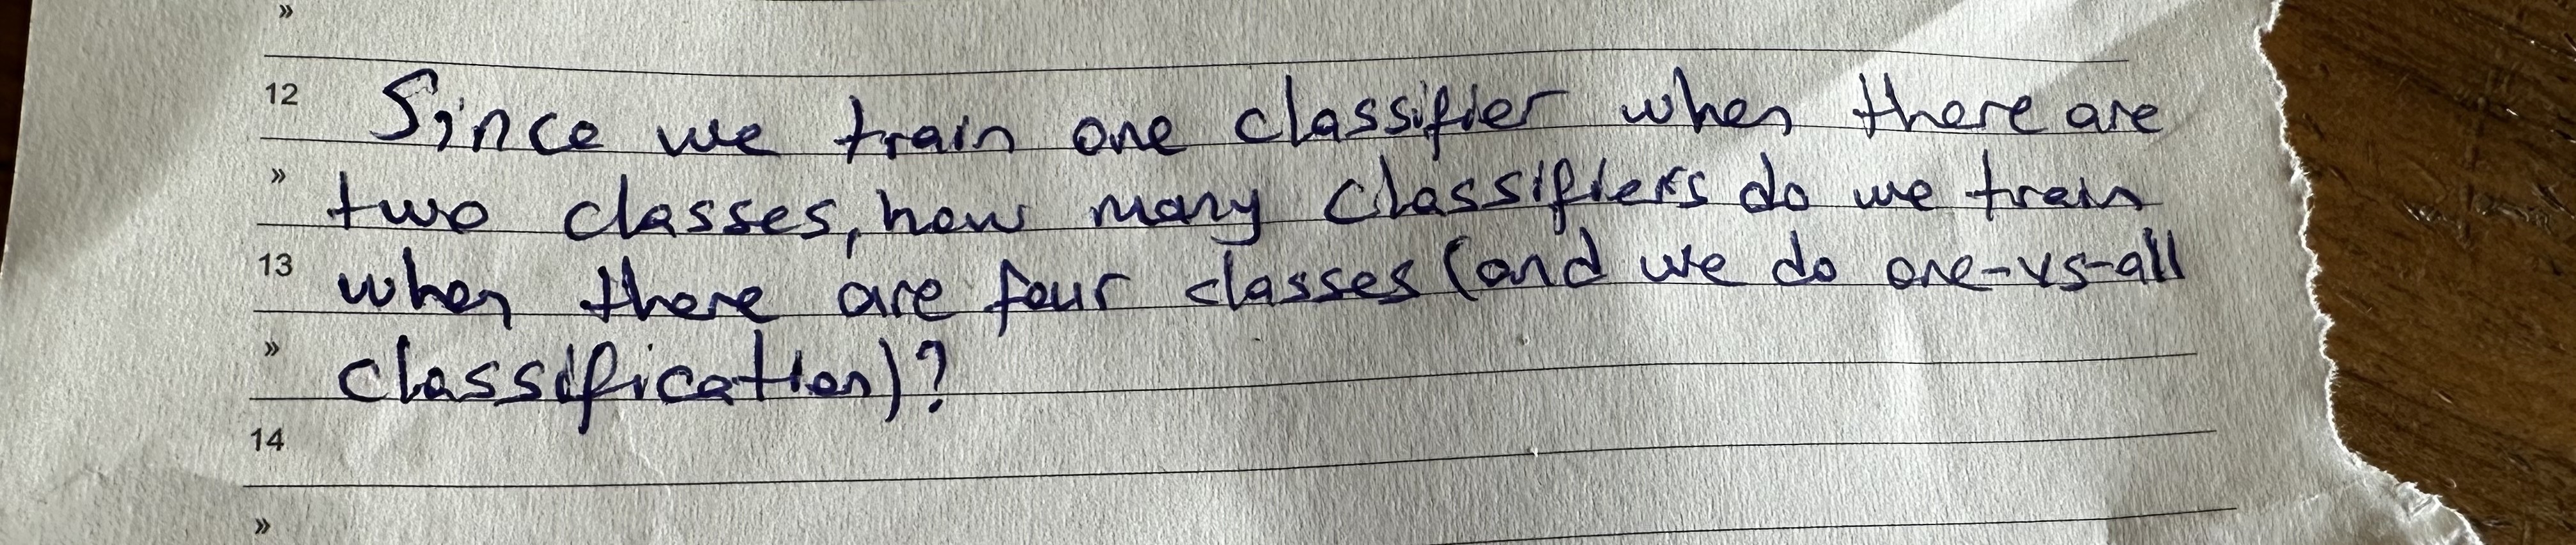 »
12 Since we train one classifier when there are
» two classes, how many classifiers do we train
13 when there are four classes (and we do one-vs-all
» classification)?
14
»